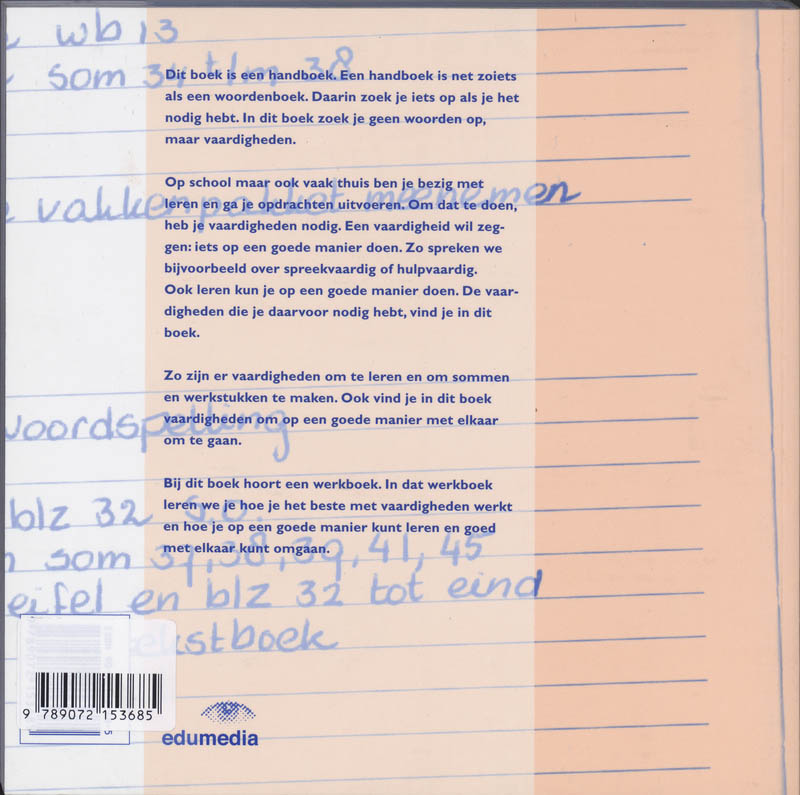 wb 13
som 34 t/m 38
Dit boek is een handboek. Een handboek is net zoiets
als een woordenboek. Daarin zoek je iets op als je het
nodig hebt. In dit boek zoek je geen woorden op,
maar vaardigheden.
vakkenpakket meenemen
Op school maar ook vaak thuis ben je bezig met
leren en ga je opdrachten uitvoeren. Om dat te doen,
heb je vaardigheden nodig. Een vaardigheid wil zeg-
gen: iets op een goede manier doen. Zo spreken we
bijvoorbeeld over spreekvaardig of hulpvaardig.
Ook leren kun je op een goede manier doen. De vaar-
digheden die je daarvoor nodig hebt, vind je in dit
boek.
Zo zijn er vaardigheden om te leren en om sommen
en werkstukken te maken. Ook vind je in dit boek
vaardigheden om op een goede manier met elkaar
om te gaan.
woordspelling
Bij dit boek hoort een werkboek. In dat werkboek
leren we je hoe je het beste met vaardigheden werkt
en hoe je op een goede manier kunt leren en goed
met elkaar kunt omgaan.
blz 32 s.o.
som 37, 38, 39, 41, 45
en blz 32 tot eind
tekstboek
9 789072 153685
edumedia